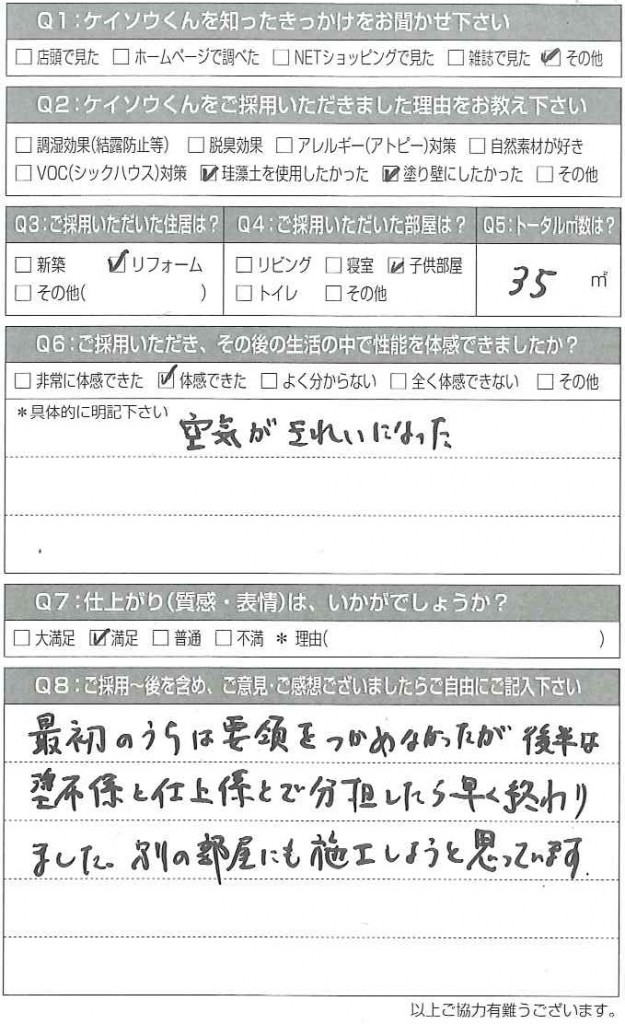 Q1:ケイソウくんを知ったきっかけをお聞かせ下さい
□店頭で見た □ホームページで調べた □NETショッピングで見た □雑誌で見た ☑その他
Q2:ケイソウくんをご採用いただきました理由をお教え下さい
□調湿効果(結露防止等) □脱臭効果 □アレルギー(アトピー)対策 □自然素材が好き
□VOC(シックハウス)対策 ☑珪藻土を使用したかった ☑塗り壁にしたかった □その他
Q3:ご採用いただいた住居は?
□新築 ☑リフォーム
□その他( )
Q4:ご採用いただいた部屋は?
□リビング □寝室 ☑子供部屋
□トイレ □その他
Q5:トータル㎡数は?
35 ㎡
Q6:ご採用いただき、その後の生活の中で性能を体感できましたか?
□非常に体感できた ☑体感できた □よく分からない □全く体感できない □その他
*具体的に明記下さい
空気がきれいになった
Q7:仕上がり(質感・表情)は、いかがでしょうか?
□大満足 ☑満足 □普通 □不満 *理由( )
Q8:ご採用~後を含め、ご意見・ご感想ございましたらご自由にご記入下さい
最初のうちは要領をつかめなかったが 後半は
係と仕上係とで分担したら早く終わり
ました。別の部屋にも施工しようと思っています.
以上ご協力有難うございます。